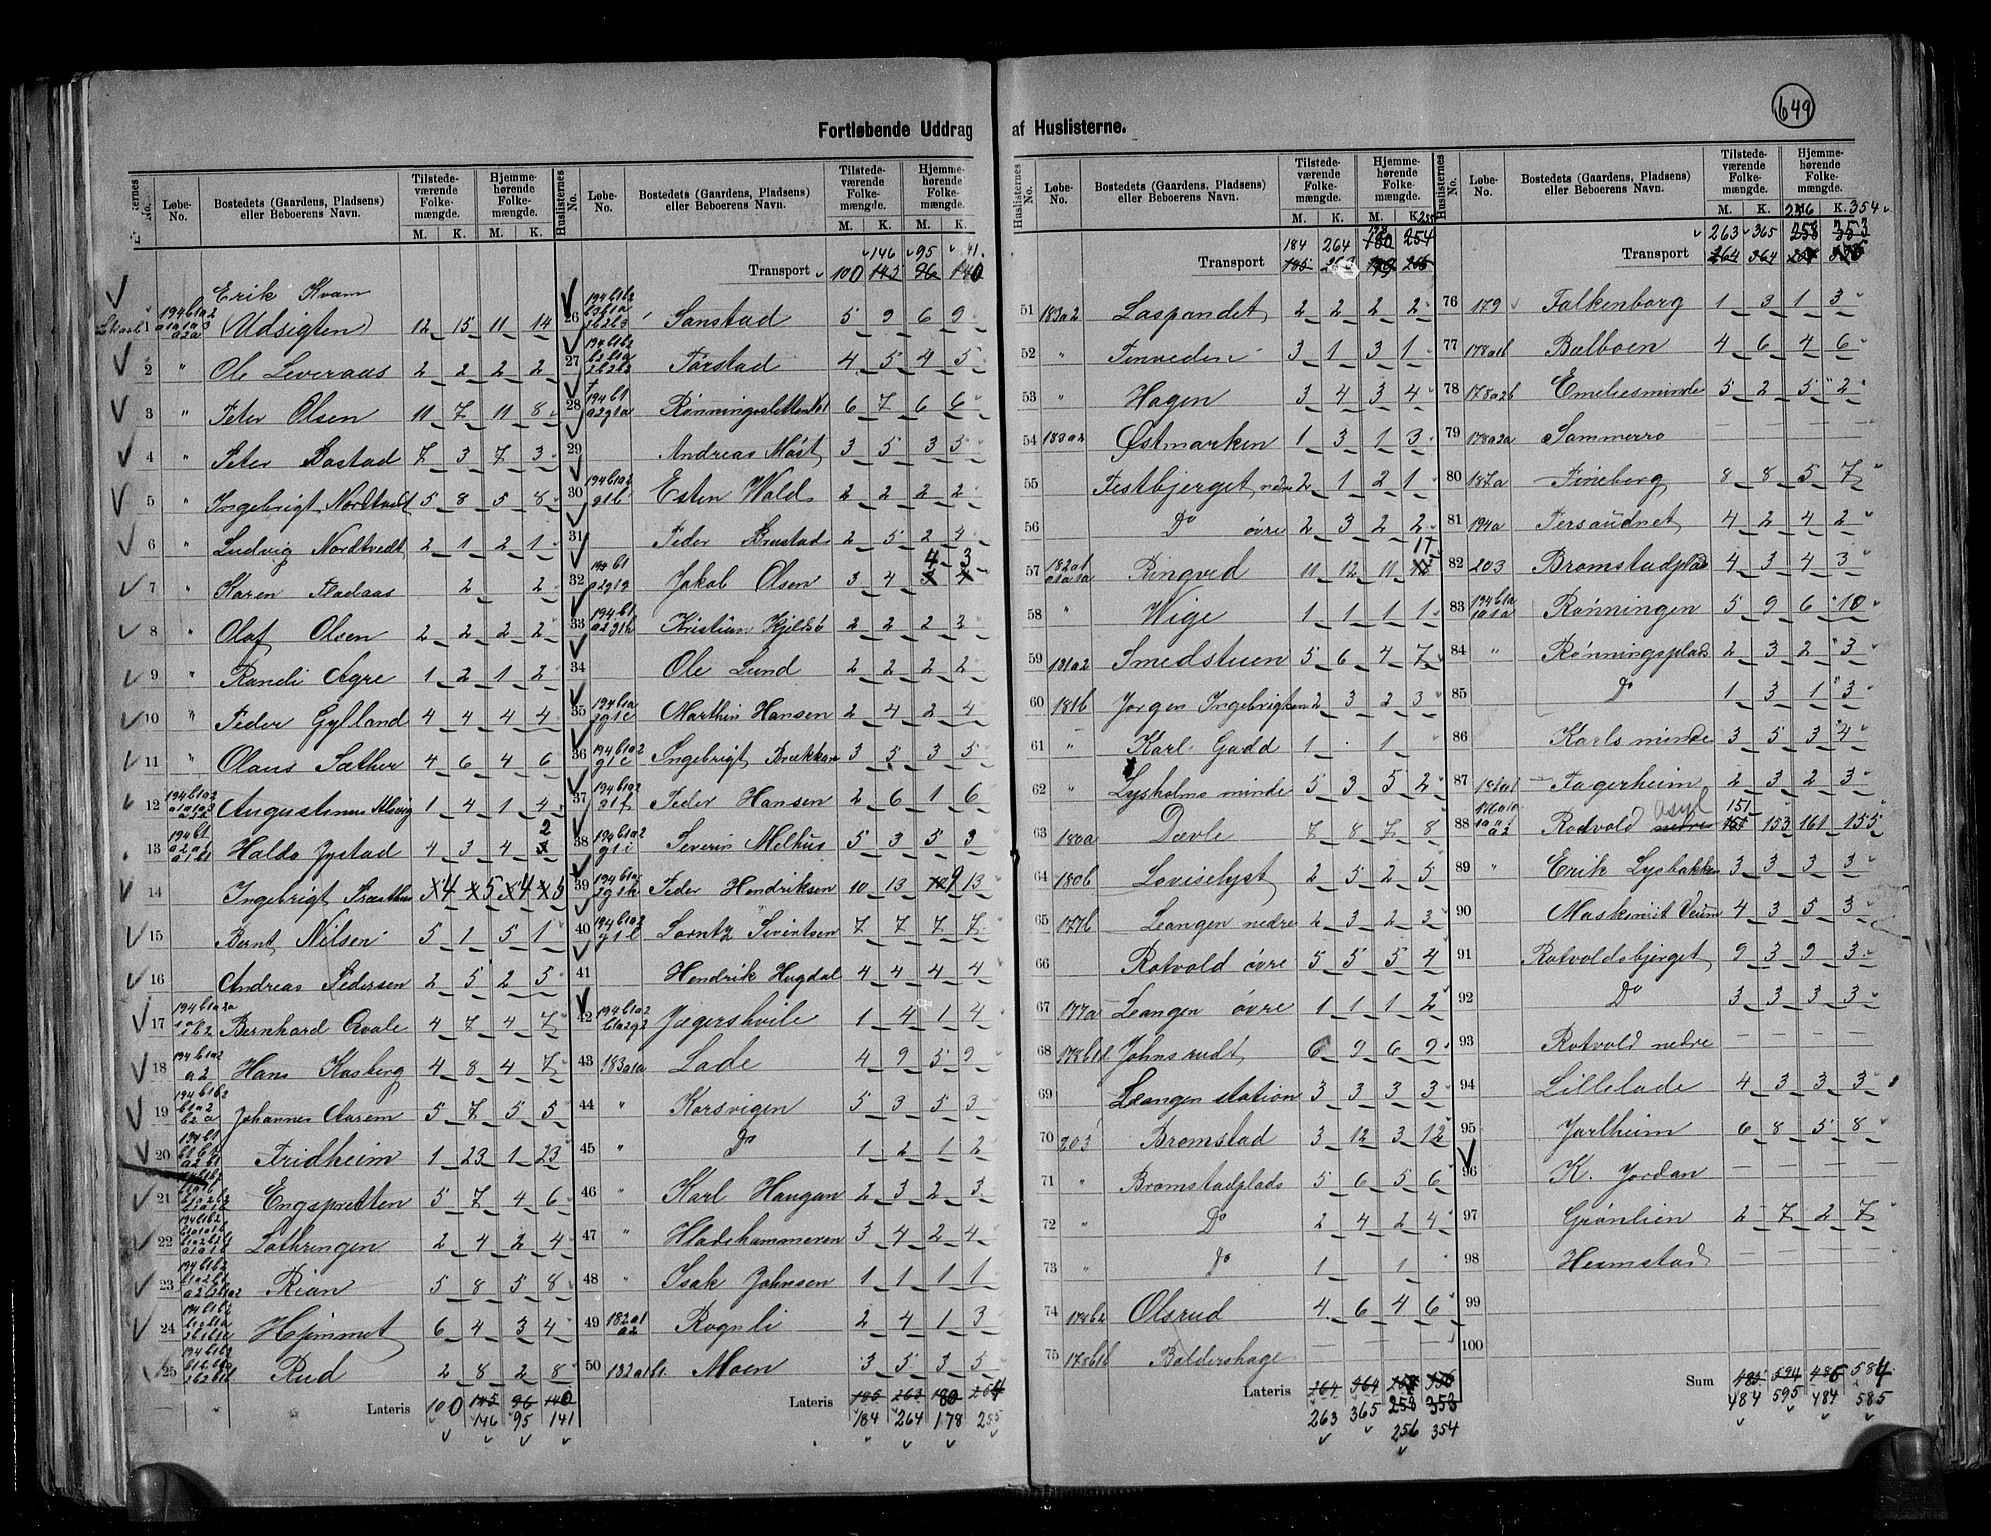 649
Fortløbende Uddrag af Huslisterne.
Huslisternes No. Løbe-No. Bostedets (Gaardens, Pladsens) eller Beboerens Navn. Tilstedeværende Folkemængde. M. K. Hjemmehørende Folkemængde. M. K.
Erik Kvam
1 194 b1a2 a1a1a3 a2a (Udsigten) 12 15 11 14
2 " Ole Leveraas 2 2 2 2
3 " Peter Olsen 11 7 11 8
4 " Peter Bostad 7 3 7 3
5 " Ingebrigt Nordtvedt 5 8 5 8
6 " Ludvig Nordtvedt 2 1 2 1
7 " Karen Fladaas 2 2
8 " Olaf Olsen 2 2 2 2
9 " Randi Agre 1 2 1 2
10 " Peder Gylland 4 4 4 4
11 " Olaus Sæther 4 6 4 6
12 194 b1a2 a1a1a3 Augustinus Alsvig 1 4 1 4
13 194 b1 a2a1 a1b1 Haldo Jystad 4 3 4 2
14 Ingebrigt 4 5 4 5
15 Bernt Nilsen 5 1 5 1
16 Andreas Pedersen 2 5 2 5
17 194 b1a2a 1b2 Bernhard Qvale 4 7 4 7
18 194 b1a2 a2 Hans Kosberg 4 8 4 7
19 194 b1b2 b1a2 b2a Johannes Aarem 5 7 5 5
20 Fridheim 1 23 1 23
21 Engspretten 5 7 4 6
22 Lothringen 2 4 2 4
23 Rian 5 8 5 8
24 Hjemmet 6 4 3 4
25 Rud 2 8 2 8
Lateris 100 145 96 140
146 95 141
Transport 100 145 96 140
146 95 141
26 194 b1b2 b3b1a 2b2b3 Sanstad 5 9 6 9
27 194 b1b2 b2b1a 2b2b3 Forstad 4 5 4 5
28 194 b1 a2g1a Rønningsletten 6 7 6 6
29 Andreas Møst 3 5 3 5
30 194 b1a2 g1b Esten Wald 2 2 2 2
31 Peder Brustad 2 5 2 4
32 194 b1 a2g1g Jakob Olsen 3 4 4 3
33 194 b1 a2g1h Kristian Kjelsø 2 2 2 2
34 Ole Lund 2 2 2 2
35 194 b1a 2g1c Marthin Hansen 2 4 2 4
36 194 b1a2 g1c Ingebrigt Brækkan 3 5 3 5
37 194 b1a2 g1f Peder Hansen 2 6 1 6
38 194 b1a2 g1i Severin Melhus 5 3 5 3
39 194 b1a 2g1k Peder Hendriksen 10 13 9 13
40 194 b1a2 g1l Lorntz Sivertsen 7 7 7 7
41 Hendrik Hugdal 4 4 4 4
42 194 b1a2 b1a2g2 Jægershvile 1 4 1 4
43 183a1a Lade 4 9 5 9
44 " Korsvigen 5 3 5 3
45 " Do 1 2 1 2
46 " Karl Haugan 2 3 2 3
47 Hladehammeren 3 4 2 4
48 " Isak Johnsen 1 1 1 1
49 182a1 a2 Rognli 2 4 1 3
50 182a1b1 Moen 3 5 3 5
Lateris 185 263 180 254
184 264 178 255
Huslisternes No. Løbe-No. Bostedets (Gaardens, Pladsens) eller Beboerens Navn. Tilstedeværende Folkemængde. M. K. Hjemmehørende Folkemængde. M. K.
255
184 264 180 254
Transport 185 263
51 183a2 Laspandet 2 2 2 2
52 " Finveden 3 1 3 1
53 " Hagen 3 4 3 4
54 183a2 Østmarken 1 3 1 3
55 Festbjerget nedre 2 1 2 1
56 Do øvre 2 3 2 2
57 182a1 a1a1a Ringved 11 12 11 11
58 " Wige 1 1 1 1
59 181a2 Smedstuen 5 6 4 7
60 181b Jørgen Ingebrigtsen 2 3 2 3
61 " Karl Gadd 1 1
62 " Lysholms minde 5 3 5 2
63 180a Dævle 7 8 7 8
64 180b Loviselyst 2 5 2 5
65 177b Leangen nedre 2 3 2 3
66 Rotvold øvre 5 5 5 4
67 177a Leangen øvre 1 1 1 2
68 178b1 Johnsrudt 6 9 6 9
69 Leangen station 3 3 3 3
70 203 Bromstad 3 12 3 12
71 " Bromstadplads 5 6 5 6
72 " Do 2 4 2 4
73 " Do 1 1
74 174b2 Olsrud 4 6 4 6
75 178b1b Baldershage
Lateris 264 364
263 365 253 353
256 354
256 354
263 365 253 353
Transport 264 364
76 179 Falkenborg 1 3 1 3
77 178a1b Balboen 4 6 4 6
78 178a2b Emeliesminde 5 2 5 2
79 178a2a Sommerro
80 187a Fineborg 8 8 5 7
81 194a Persaudnet 4 2 4 2
82 203 Bromstadplads 4 3 4 3
83 194 b1a 1a1a Rønningen 5 9 6 10
84 " Rønningsplads 2 3 2 3
85 Do 1 3 1 3
86 Karls minde 3 5 3 4
87 Fagerheim 2 3 2 3
88 176a1a Rotvold nedre asyl 151 153 161 155
89 " Erik Lysbakken 3 3 3 3
90 Maskinist Veum 4 3 5 3
91 Rotvoldsbjerget 9 3 9 3
92 Do 3 3 3 3
93 Rotvold nedre
94 Lillelade 4 3 3 3
95 Jarlheim 6 8 5 8
96 K. Jordan
97 Grønlien 2 7 2 7
98 Heimstad
99
100
Sum 485 594 485 584
484 595 484 585